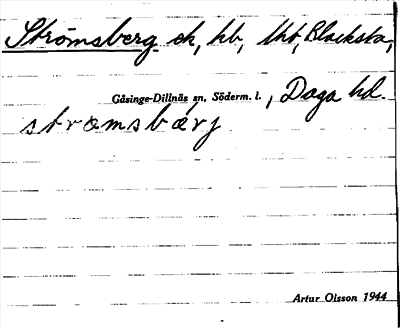 Strömsberg ek, hb, lht, Blacksta,
Gåsinge-Dillnäs sn, Söderm. l., Daga hd.
strömsbärj
Artur Olsson 1944